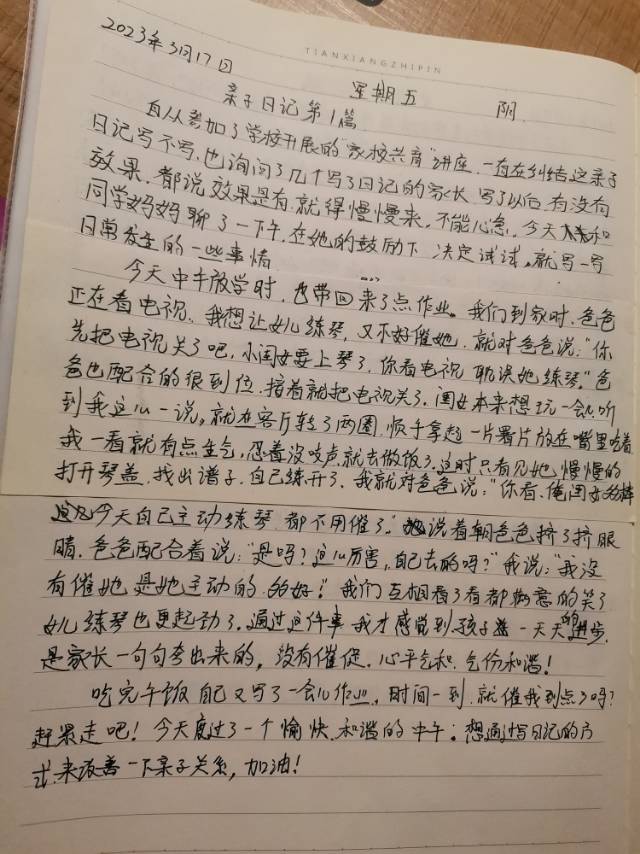 TIANXIANGZHIPIN
2023年3月17日 星期五 阴
亲子日记第1篇
自从参加了学校开展的"家校共育"讲座,一直在纠结这亲子
日记写不写,也询问了几个写了日记的家长,写了以后,有没有
效果,都说效果是有,就得慢慢来,不能心急,今天和
同学妈妈聊了一下午,在她的鼓励下,决定试试,就写一写
日常发生的一些事情
今天中午放学时,也带回来了点作业。我们到家时,爸爸
正在看电视,我想让女儿练琴,又不好催她,就对爸爸说:"你
先把电视关了吧,小闺女要上琴了,你看电视耽误她练琴。"爸
爸也配合的很到位,接着就把电视关了,闺女本来想玩一会儿听
到我这么一说,就在客厅转了两圈,顺手拿起一片薯片放在嘴里吃着
我一看就有点生气,忍着没吱声,就去做饭了,这时只有见她慢慢的
打开琴盖,找出谱子,自己练开了,我就对爸爸说:"你看,俺闺女多棒
今天自己主动练琴,都不用催了。"说着朝爸爸挤了挤眼
睛,爸爸配合着说:"是吗?这么厉害,自己去的吗?"我说:"我没
有催她,是她主动的,多好!"我们互相看了看都满意的笑了
女儿练琴也更起劲了。通过这件事,我才感觉到孩子一天天的进步,
是家长一句句夸出来的,没有催促,心平气和,气份和谐!
吃完午饭自己又写了一会儿作业,时间一到,就催我到点了吗?
赶紧走吧!今天度过了一个愉快、和谐的中午。想通过写日记的方
式来改善一下亲子关系,加油!